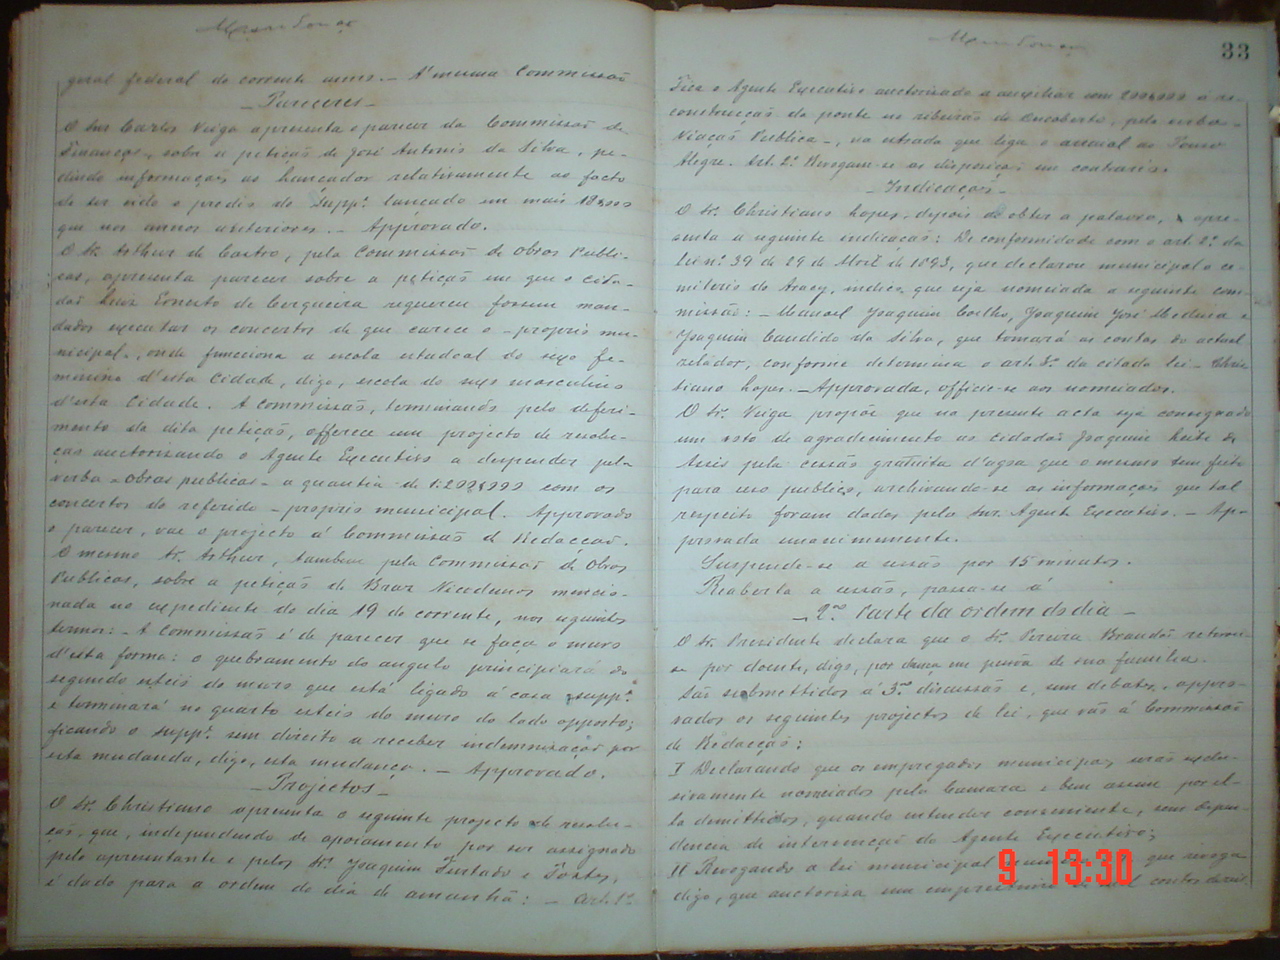 geral federal do corrente anno. – A' mesma Commissão
– Pareceres –
O Snr. Carlos Veiga apresenta o parecer da Commissão de
Finanças, sobre a petição de José Antonio da Silva, pe-
dindo informação ao lançador relativamente ao facto
de ser sido o predio do Suppe. lançado em mais 18$000
que nos annos anteriores. – Approvado.
O Sr. Arthur de Castro, pela Commissão de Obras Publi-
cas, apresenta parecer sobre a petição em que o cida-
dão Luiz Ernesto de Cerqueira requereu fossem man-
dados executar os concertos de que carece o – proprio mu-
nicipal –, onde funcciona a escola estadoal do sexo fe-
minino d'esta Cidade, digo, escola do sexo masculino
d'esta Cidade. A Commissão, terminando pelo deferi-
mento da dita petição, offerece um projecto de resolu-
ção auctorisando o Agente Executivo a despender pela
verba – Obras publicas – a quantia de com os
concertos do referido – proprio municipal. Approvado
o parecer, vae o projecto á Commissão de Redacção.
O mesmo Sr. Arthur, tambem pela Commissão de Obras
Publicas, sobre a petição de Braz Nicodemos mencio-
nada no expediente do dia 19 do corrente, nos seguintes
termos: – A Commissão é de parecer que se faça o muro
d'esta forma: o quebramento do angulo principiará do
segundo esteio do muro que está ligado á casa suppe.
e terminará no quarto esteio do muro do lado opposto;
ficando o suppe. sem direito a receber indemnisação por
esta mudanda, digo, esta mudança. – Approvado.
– Projectos –
O Sr. Christiano apresenta o seguinte projecto de resolu-
ção, que, independendo de apoiamento por ser assignado
pelo apresentante e pelos Srs. Joaquim Furtado e Fortes,
é dado para a ordem do dia de amanhã: – Art. 1º
33
Fica o Agente Executivo auctorisado a auxiliar com 200$000 a re-
construcção da ponte no ribeirão do Encoberto, pela verba –
Viação Publica –, na estrada que liga o arraial ao Pouso
Alegre. Art. 2º Revogam-se as disposições em contrario.
– Indicação –
O Sr. Christiano Lopes, depois de obter a palavra, apre-
senta a seguinte indicação: De conformidade com o art. 2º da
lei nº 39 de 29 de Abril de 1893, que declarou municipal o ce-
miterio do Aracy, indico que seja nomeada a seguinte com-
missão: – Manoel Joaquim Coelho, Joaquim José Medina e
Joaquim Candido da Silva, que tomará as contas do actual
zelador, conforme determina o art. 3º da citada lei – Chris-
tiano Lopes. – Approvada, officie-se aos nomeados.
O Sr. Veiga propõe que na presente acta seja consignado
um voto de agradecimento ao cidadão Joaquim Leite de
Assis pela cessão gratuita d'agoa que o mesmo tem feito
para uso publico, archivando-se as informações que tal
respeito foram dadas pelo Snr. Agente Executivo. – Ap-
provada unanimemente.
Suspende-se a sessão por 15 minutos.
Reaberta a sessão, passa-se á
– 2ª Parte da ordem do dia –
O Sr. Presidente declara que o Sr. Pereira Brandão retirou-
se por doente, digo, por doença em pessôa de sua familia.
São submettidos á 3ª discussão e, sem debates, appro-
vados os seguintes projectos de lei, que vão á Commissão
de Redacção:
I Declarando que os empregados municipaes serão exclu-
sivamente nomeados pela Camara e bem assim por el-
la demittidos, quando entender conveniente, sem depen-
dencia de intervenção do Agente Executivo;
II Revogando a lei municipal que revoga
digo, que auctorisa um emprestimo de mil contos de reis.
9 13:30